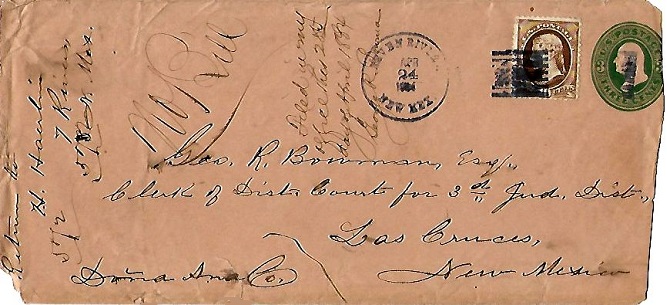 Return to
H. Hamlin
7 Rivers
N. Mex.
No Bill
Filed in my
office this 28th
day of April 1884
Geo. R. Bowman
SEVEN RIVERS
APR
24
1884
NEW MEX
U.S. POSTAGE
Geo. R. Bowman, Esq.,
Clerk of Dist. Court for 3d Jud. Dist.,
Las Cruces,
Doña Ana Co,
New Mexico